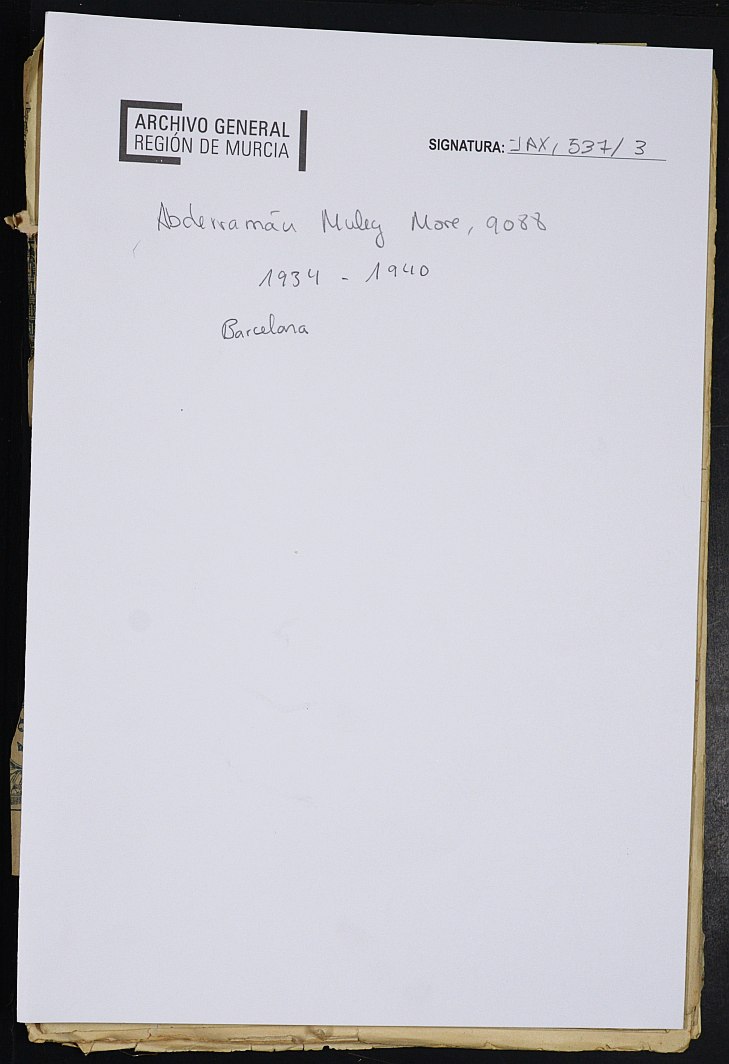 ARCHIVO GENERAL
REGIÓN DE MURCIA
SIGNATURA: JAX, 537/3
Abderramán Muley More, 9088
1934 - 1940
Barcelona